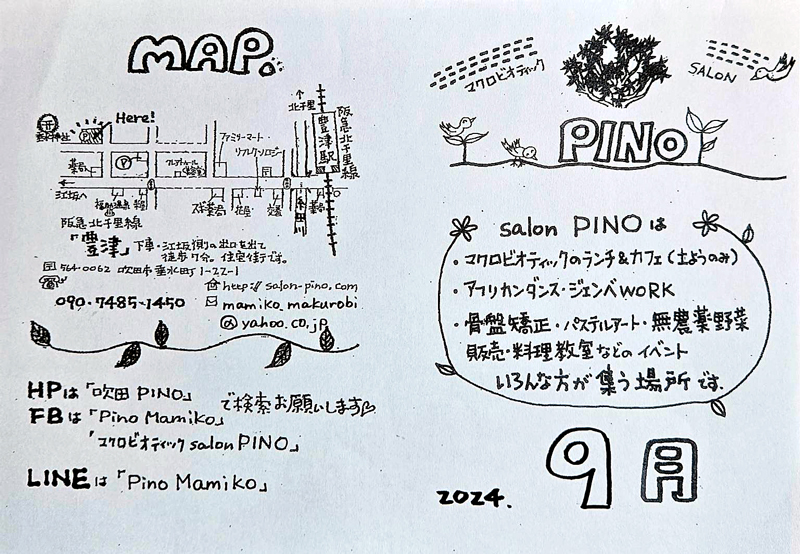 MAP.
Here!
北千里
阪急北千里線
豊津駅
ファミリーマート
リフレクソロジー
薬局
P
江坂へ
スギ薬局
花屋
交番
阪急北千里線
「豊津」下車・江坂側の出口を出て
徒歩7分。住宅街です。
564-0062 吹田市垂水町1-22-1
http://salon-pino.com
090-7485-1450
mamiko_makurobi
@yahoo.co.jp
HPは「吹田PINO」
で検索お願いします
FBは「Pino Mamiko」
「マクロビオティック salon PINO」
LINEは「Pino Mamiko」
マクロビオティック
SALON
PINO
salon PINOは
・マクロビオティックのランチ&カフェ(土ようのみ)
・アフリカンダンス・ジェンベWORK
・骨盤矯正・パステルアート・無農薬野菜
販売・料理教室などのイベント
いろんな方が集う場所です。
2024. 9月